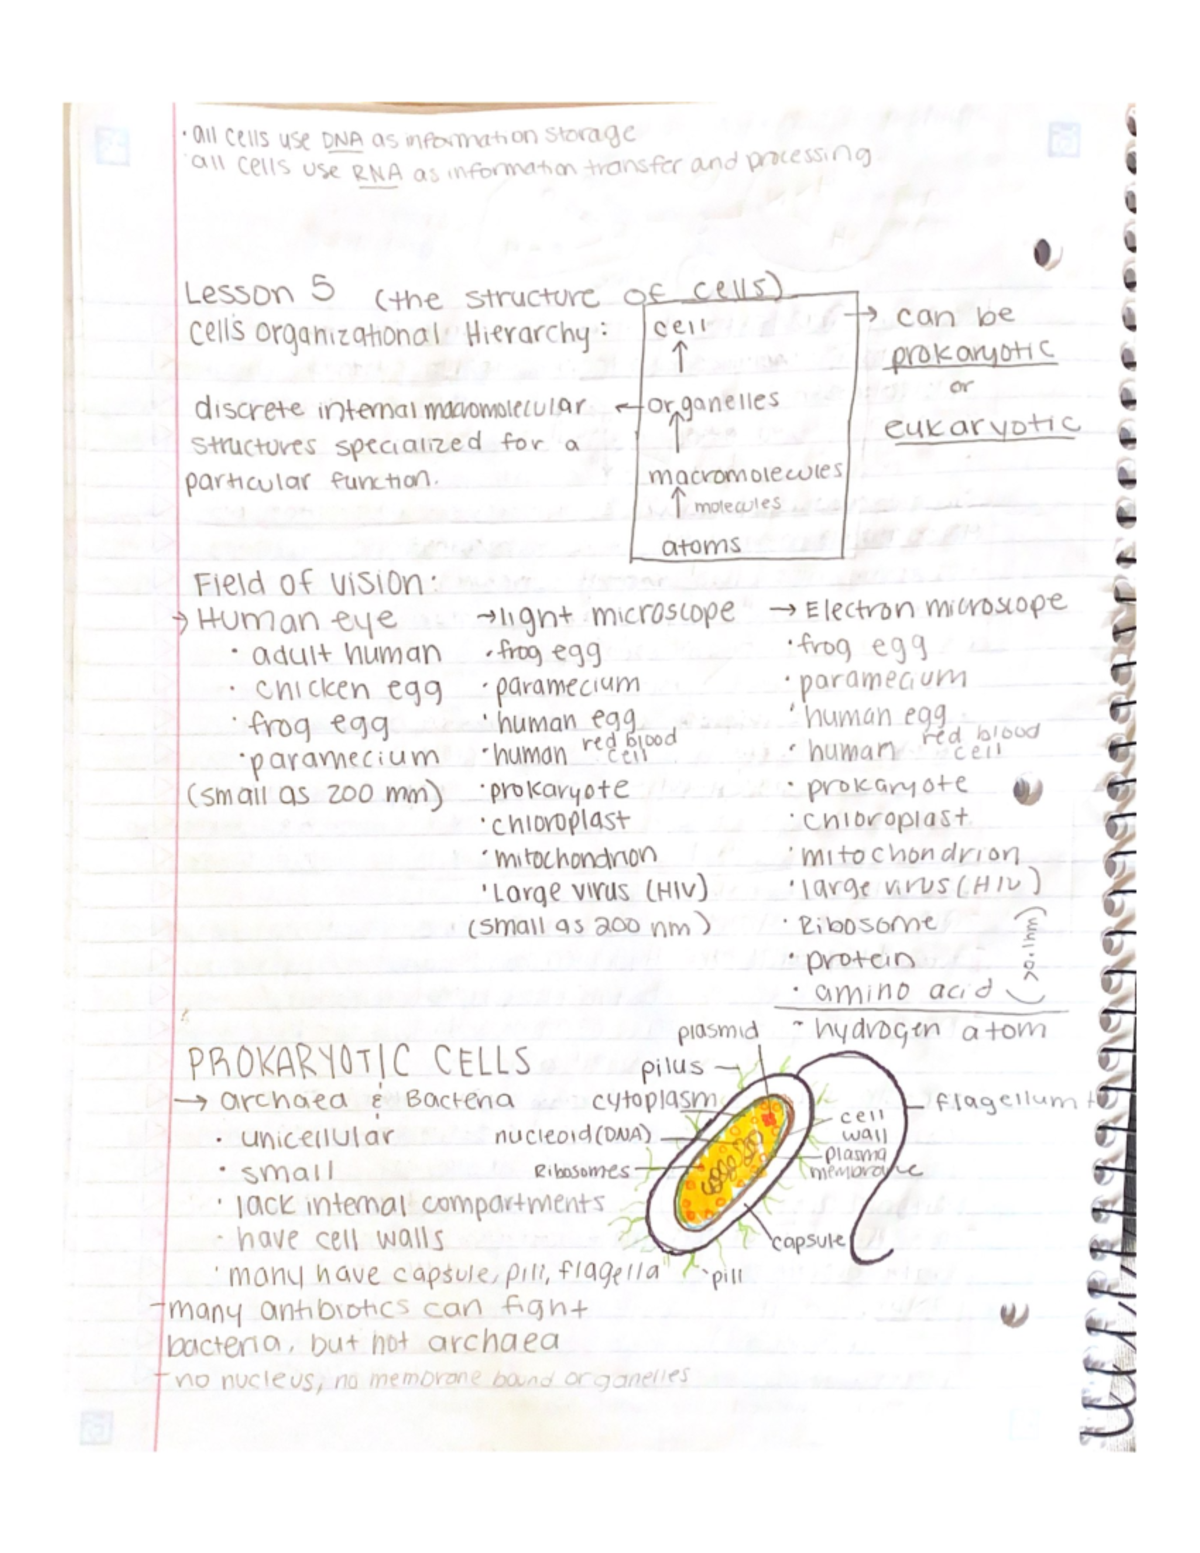 · all cells use DNA as information storage
· all cells use RNA as information transfer and processing
Lesson 5 (the structure of cells)
cell's organizational Hierarchy:
cell
→ can be
prokaryotic
or
eukaryotic
discrete internal macromolecular ← organelles
structures specialized for a
particular function.
macromolecules
molecules
atoms
Field of vision:
→ Human eye
· adult human
· chicken egg
· frog egg
· paramecium
(small as 200 mm)
→ light microscope
· frog egg
· paramecium
· human egg
· human red blood cell
· prokaryote
· chloroplast
· mitochondrion
· Large virus (HIV)
(small as 200 nm)
→ Electron microscope
· frog egg
· paramecium
· human egg
· human red blood cell
· prokaryote
· chloroplast
· mitochondrion
· large virus (HIV)
· Ribosome
· protein
· amino acid
(>0.1nm)
- hydrogen atom
PROKARYOTIC CELLS
→ archaea & Bacteria
· unicellular
· small
· lack internal compartments
· have cell walls
· many have capsule, pili, flagella
- many antibiotics can fight
bacteria, but not archaea
- no nucleus, no membrane bound organelles
plasmid
pilus
cytoplasm
nucleoid (DNA)
Ribosomes
flagellum
cell
wall
plasma
membrane
capsule
pili